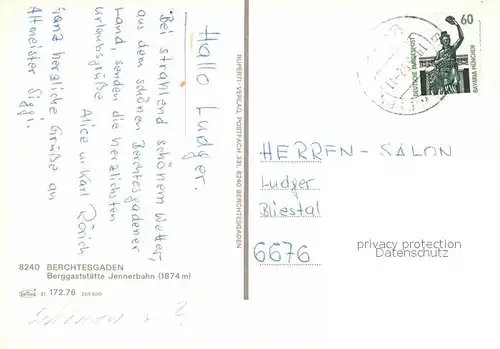 Hallo Ludger.
Bei strahlend schönem Wetter,
aus dem schönen Berchtesgadener
Land, senden die herzlichsten
Urlaubsgrüße
Alice u. Karl
Ganz herzliche Grüße an
Altmeister Siggi.
8240 BERCHTESGADEN
Berggaststätte Jennerbahn (1874 m)
172.76
RUPERTI-VERLAG, POSTFACH 333, 8240 BERCHTESGADEN
60
DEUTSCHE BUNDESPOST
BAVARIA MÜNCHEN
HERREN-SALON
Ludger
Bliestal
6676
privacy protection
Datenschutz